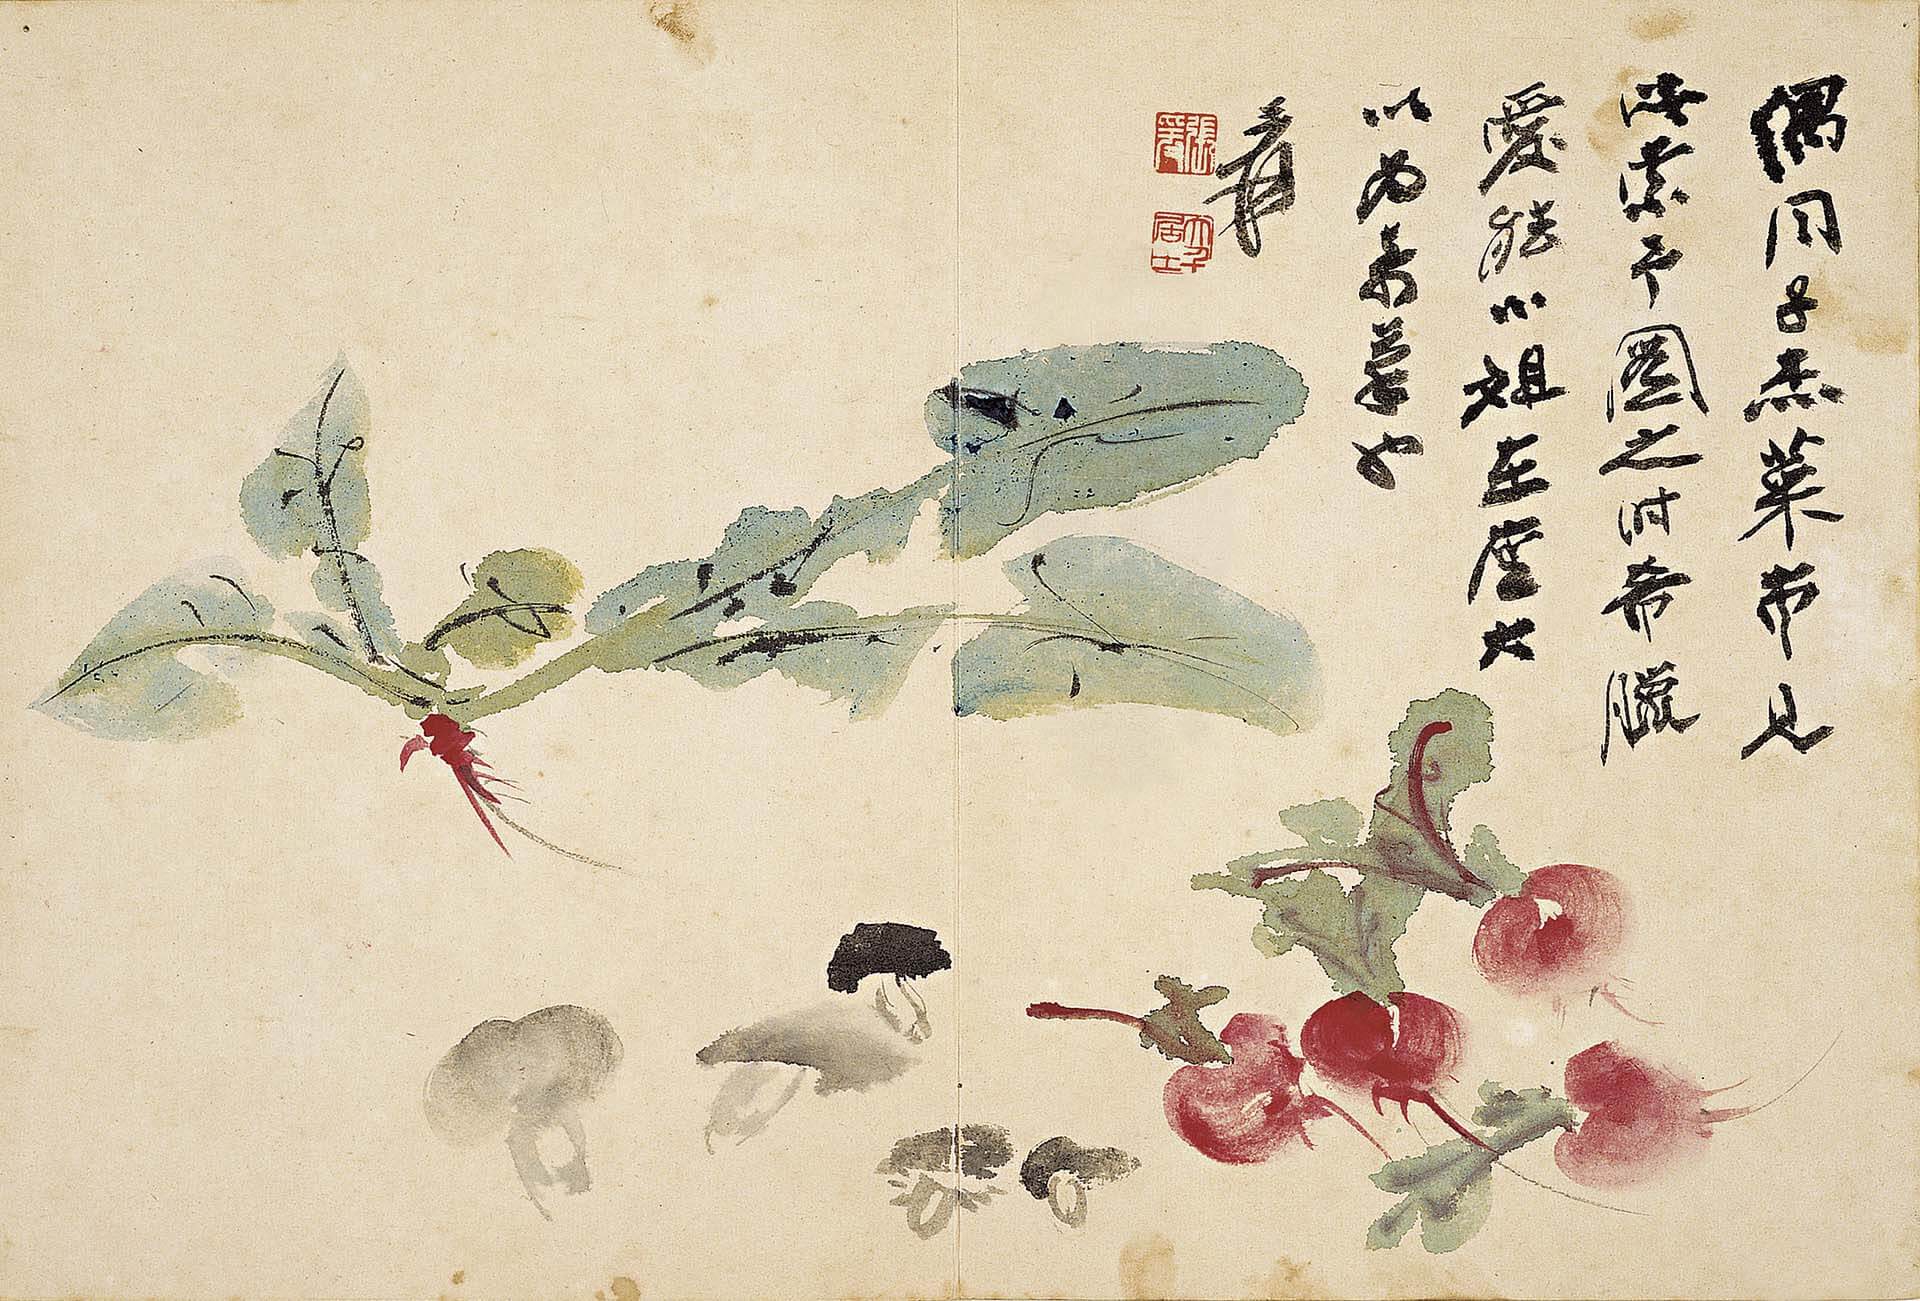 偶同子杰菜市見
此索予圖之时希臘
愛能小姐在座大
以为奇事也
爰
張爰
大千居士